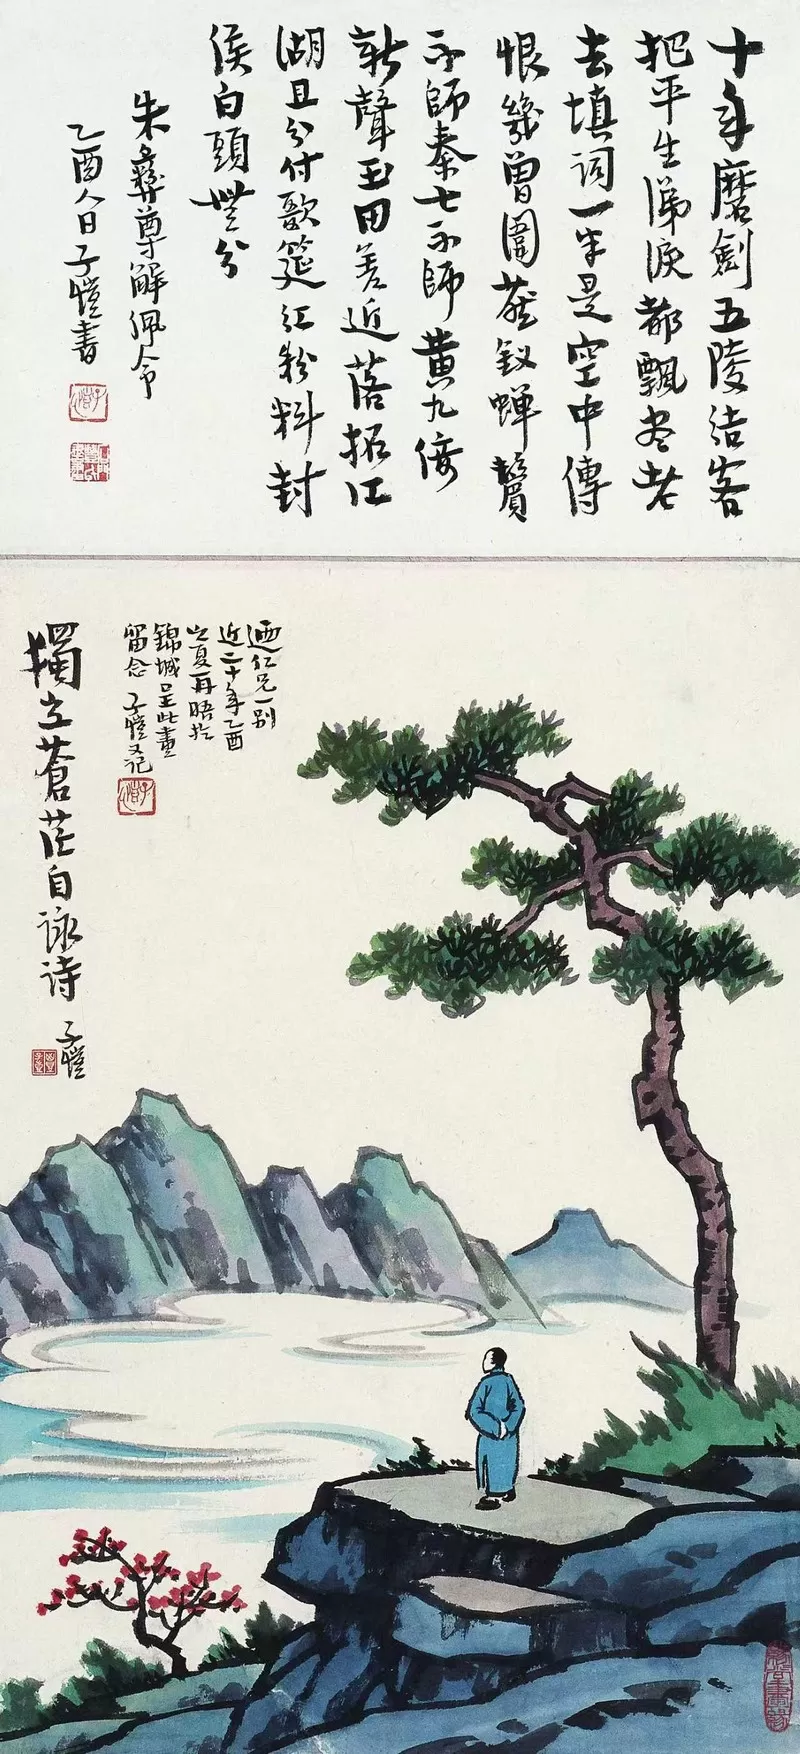 十年磨劍五陵结客
把平生涕淚都飄尽老
去填詞一半是空中傳
恨幾曾圍燕釵蟬鬢
不師秦七不師黄九倚
新聲玉田差近落拓江
湖且分付歌筵红粉料封
侯白頭無分
朱彝尊解佩令
乙酉人日子愷書
仁兄一別
近二十年乙酉
之夏再晤於
錦城呈此畫
留念 子愷又记
獨立蒼茫自詠诗
子愷